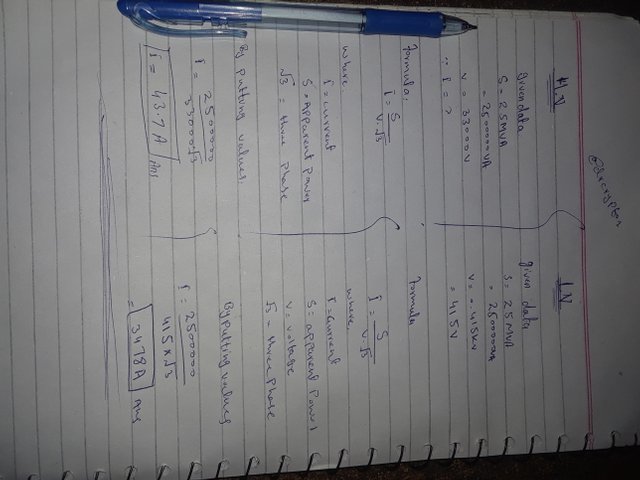 @drcrypton
H.V
given data
S = 2.5MVA
= 2500000VA
V = 33000V
∴ I = ?
Formula:
I = S / V.√3
where
I = current
S = Apparent Power
√3 = three phase
By putting values,
I = 2500000 / 33000√3
I = 43.7A Ans
LV
given data
S = 2.5MVA
= 2500000VA
V = 0.415KV
= 415V
formula
I = S / V.√3
where
I = Current
S = apparent Power
V = voltage
√3 = three phase
By putting values
I = 2500000 / 415x√3
= 3478A ans